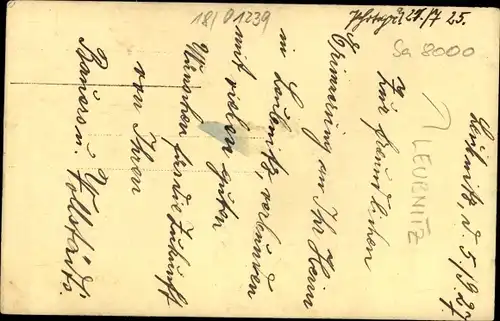 18/01239
Photogr. 29./7. 25.
Sa 8000
LEUBNITZ
Leubnitz, d. 5./9. 27.
Zur freundlichen
Erinnerung an Ihr Heim
in Leubnitz, verbunden
mit vielen guten
Wünschen für die Zukunft
von Ihren
Bauers u. Vollstädts.